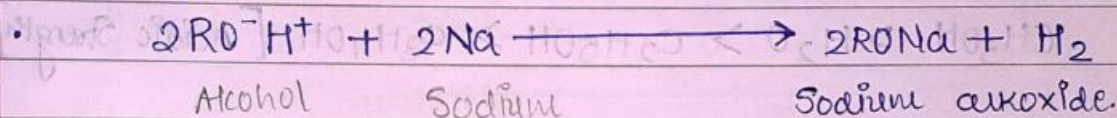 • 2RO⁻H⁺ + 2Na ⟶ 2RONa + H₂
Alcohol Sodium Sodium alkoxide.